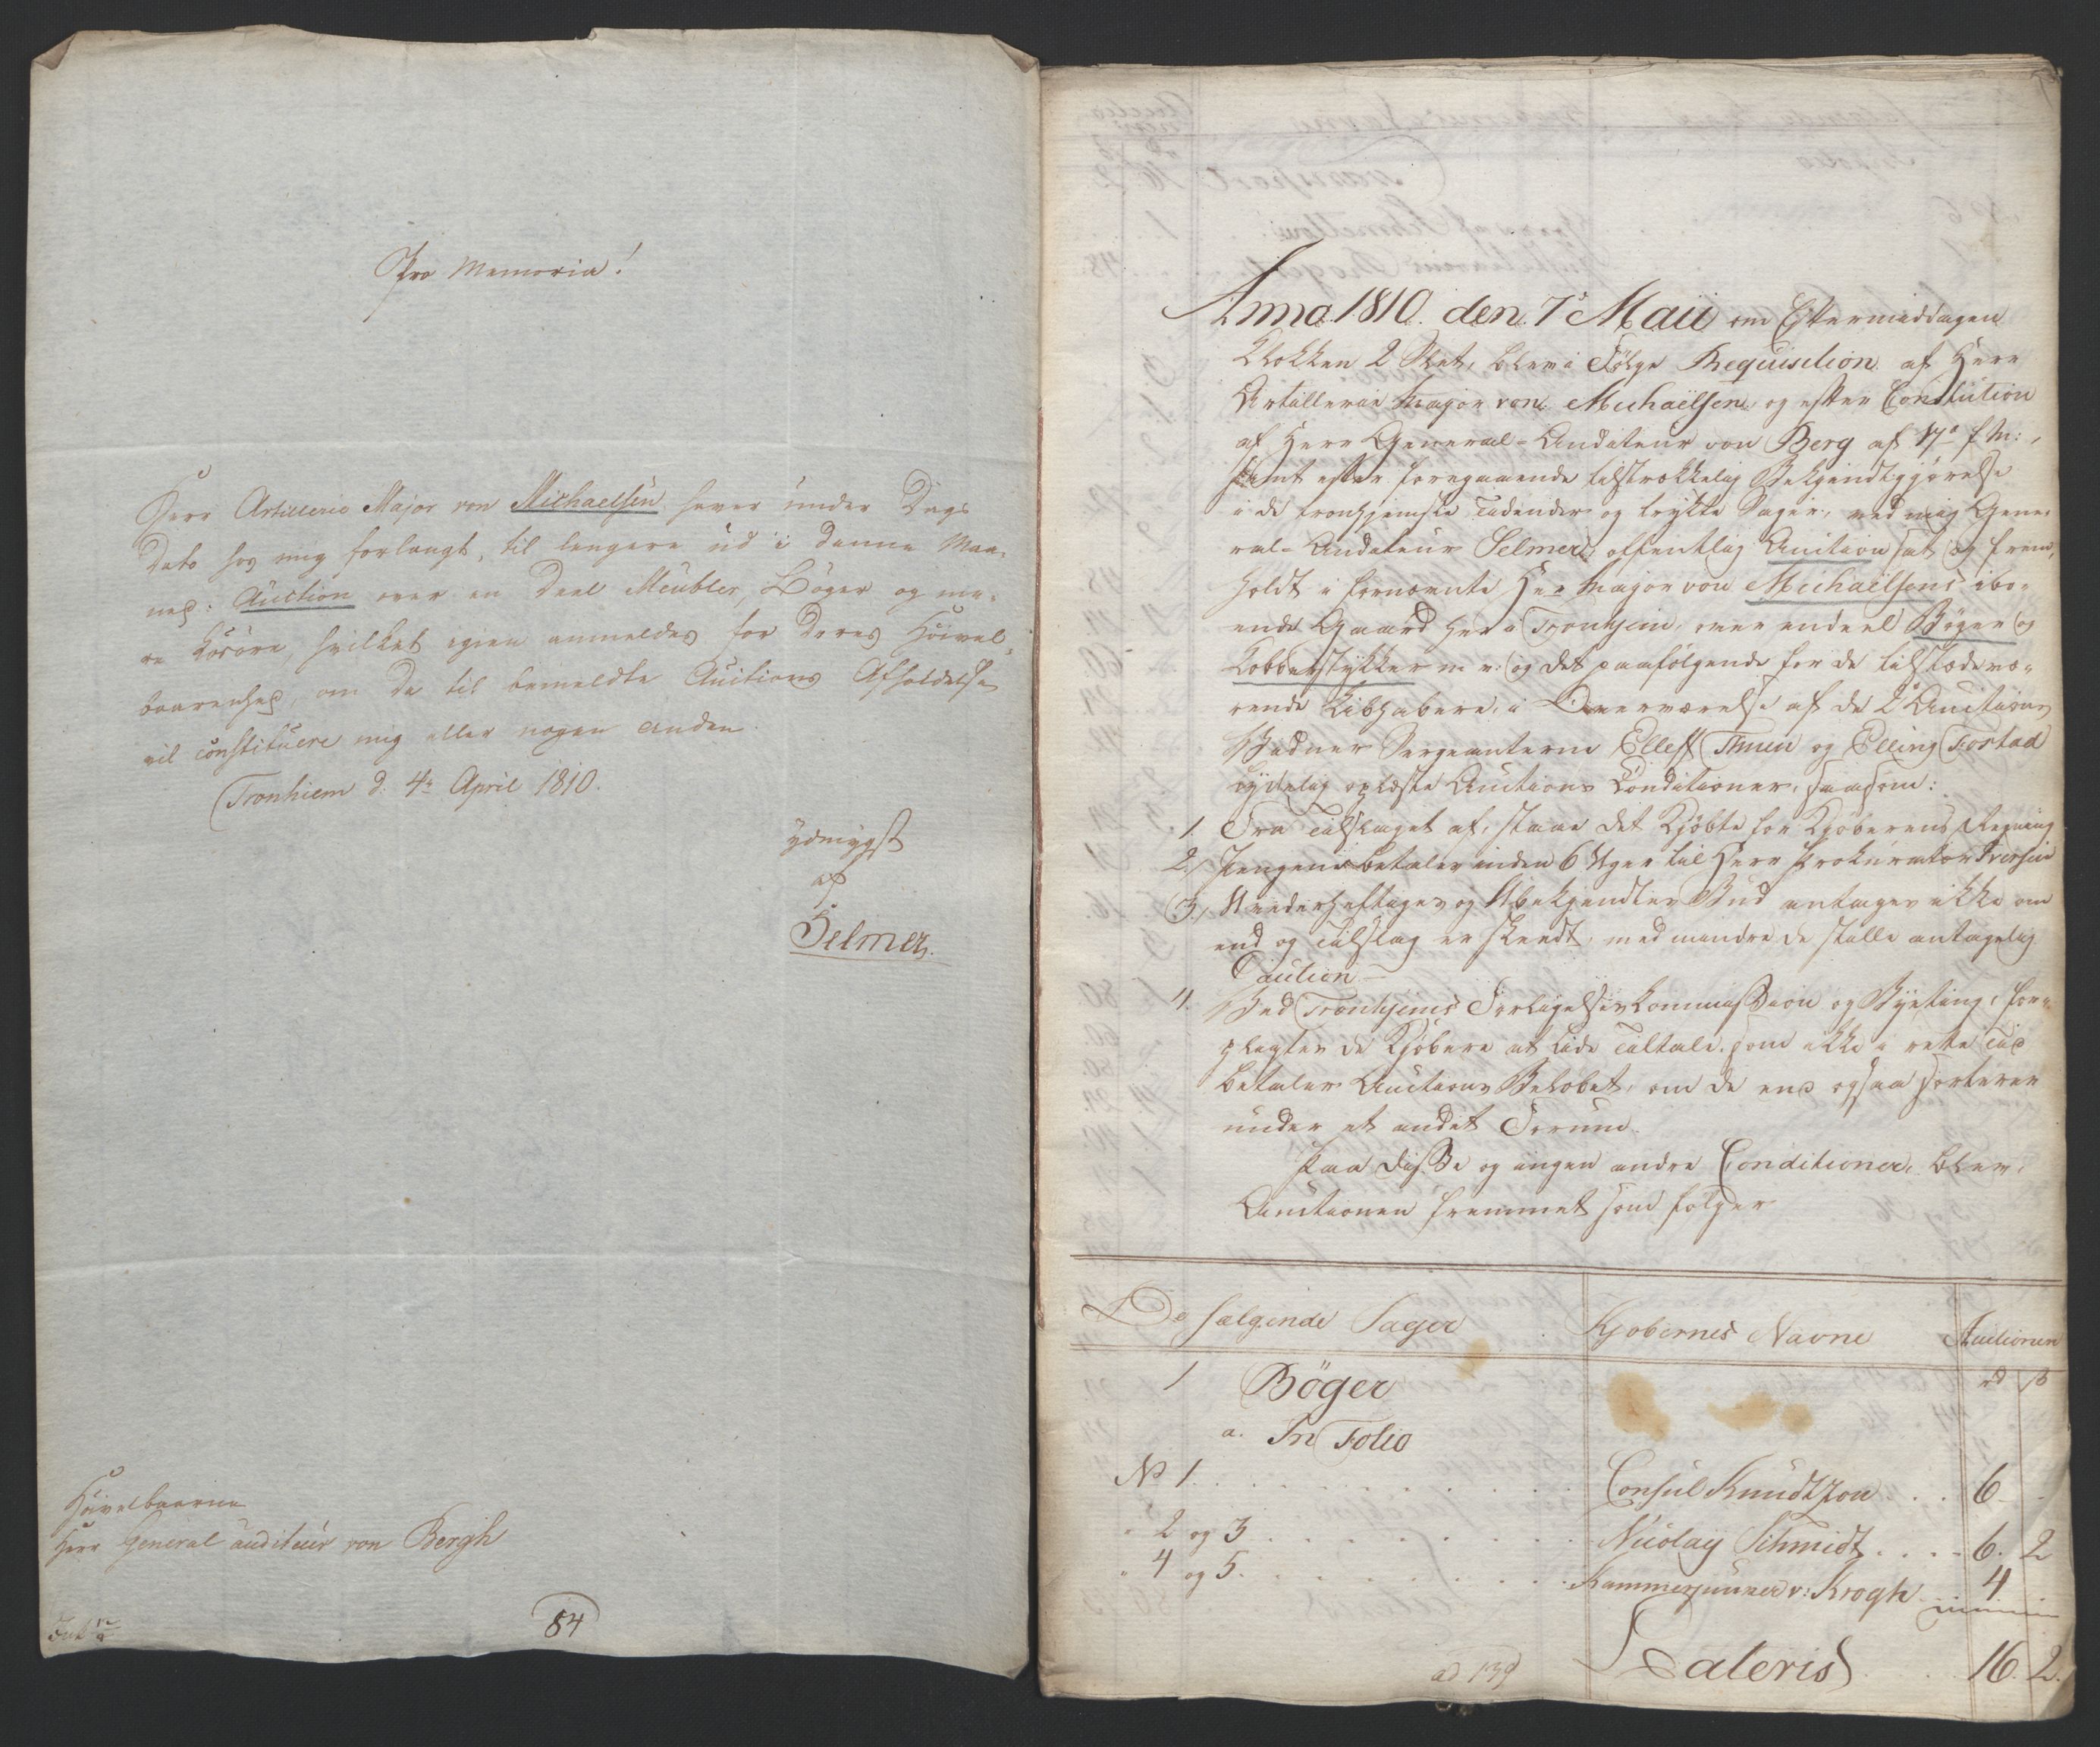 Pro Memoria!
Herr Artillerie Major von Michaelsen haver under Dags
Dato hos mig forlangt, til lengere ud i denne Maa-
ned: Auction over en Deel Meubler, Bøger og me-
re Løsøre, hvilket igien anmeldes for Deres Høivel-
baarenhed, om De til bemeldte Auctions Afholdelse
vil constituere mig eller nogen anden
Tronhiem d: 4de April 1810.
ydmygst
af
Selmer.
Høivelbaarne
Herr General auditeur von Bergh
84
Anno 1810. den 7de Maii om Eftermiddagen
Klokken 2 Slet, blev i Følge Requisition af Herr
Artillerie Major von Michaëlsen og efter Constution
af Herr General-Auditeur von Berg af 17de f. M:,
samt efter foregaaende tilstrækkelig Bekjendtgjørelse
i de trondhjemske Tidender og trykte Sager, ved mig Gene-
ral-Auditeur Selmer, offentlig Auction sat og frem-
holdt i fornævnte Hr Major von Michaëlsens iboe-
ende Gaard her i Tronhjem, over endeel Bøger og
Kobberstykker m. v: og det paafølgende for de tilstædevæ-
rende Liebhabere, i Overværelse af de 2de Auctions
Vidner Sergeanterne Ellef Thuen og Elling Fostad
tydelig oplæste Auctions Conditioner, saasom:
1. Fra Tilslaget af, staae det Kjøbte for Kjøberens Regning
2. Pengene betales inden 6 Uger til Herr Prokurator Iversen
3. Uvederheftiges og Ubekjendtes Bud antages ikke om
end og Tilslag er skeedt, med mindre de stille antagelig
Caution
4. Ved Tronhjems Forligelses Kommission og Byeting, for-
pligtes de Kjøbere at lide Tiltale som ikke i rette Tid
betaler Auctions Beløbet, om de end ogsaa sorterer
under et andet Forum.
Paa disse og ingen andre Conditioner, blev
Auctionen fremmet som følger
De sælgende Sager Kjøbernes Navne Auctionen
rd ß
1 Bøger
a. In Folio
No 1. Consul Knudtzon 6
" 2 og 3 Nicolay Schmidt 6. 2
" 4 og 5. Kammerjunker v: Krogh 4
Lateris 16. 2.
ad 139